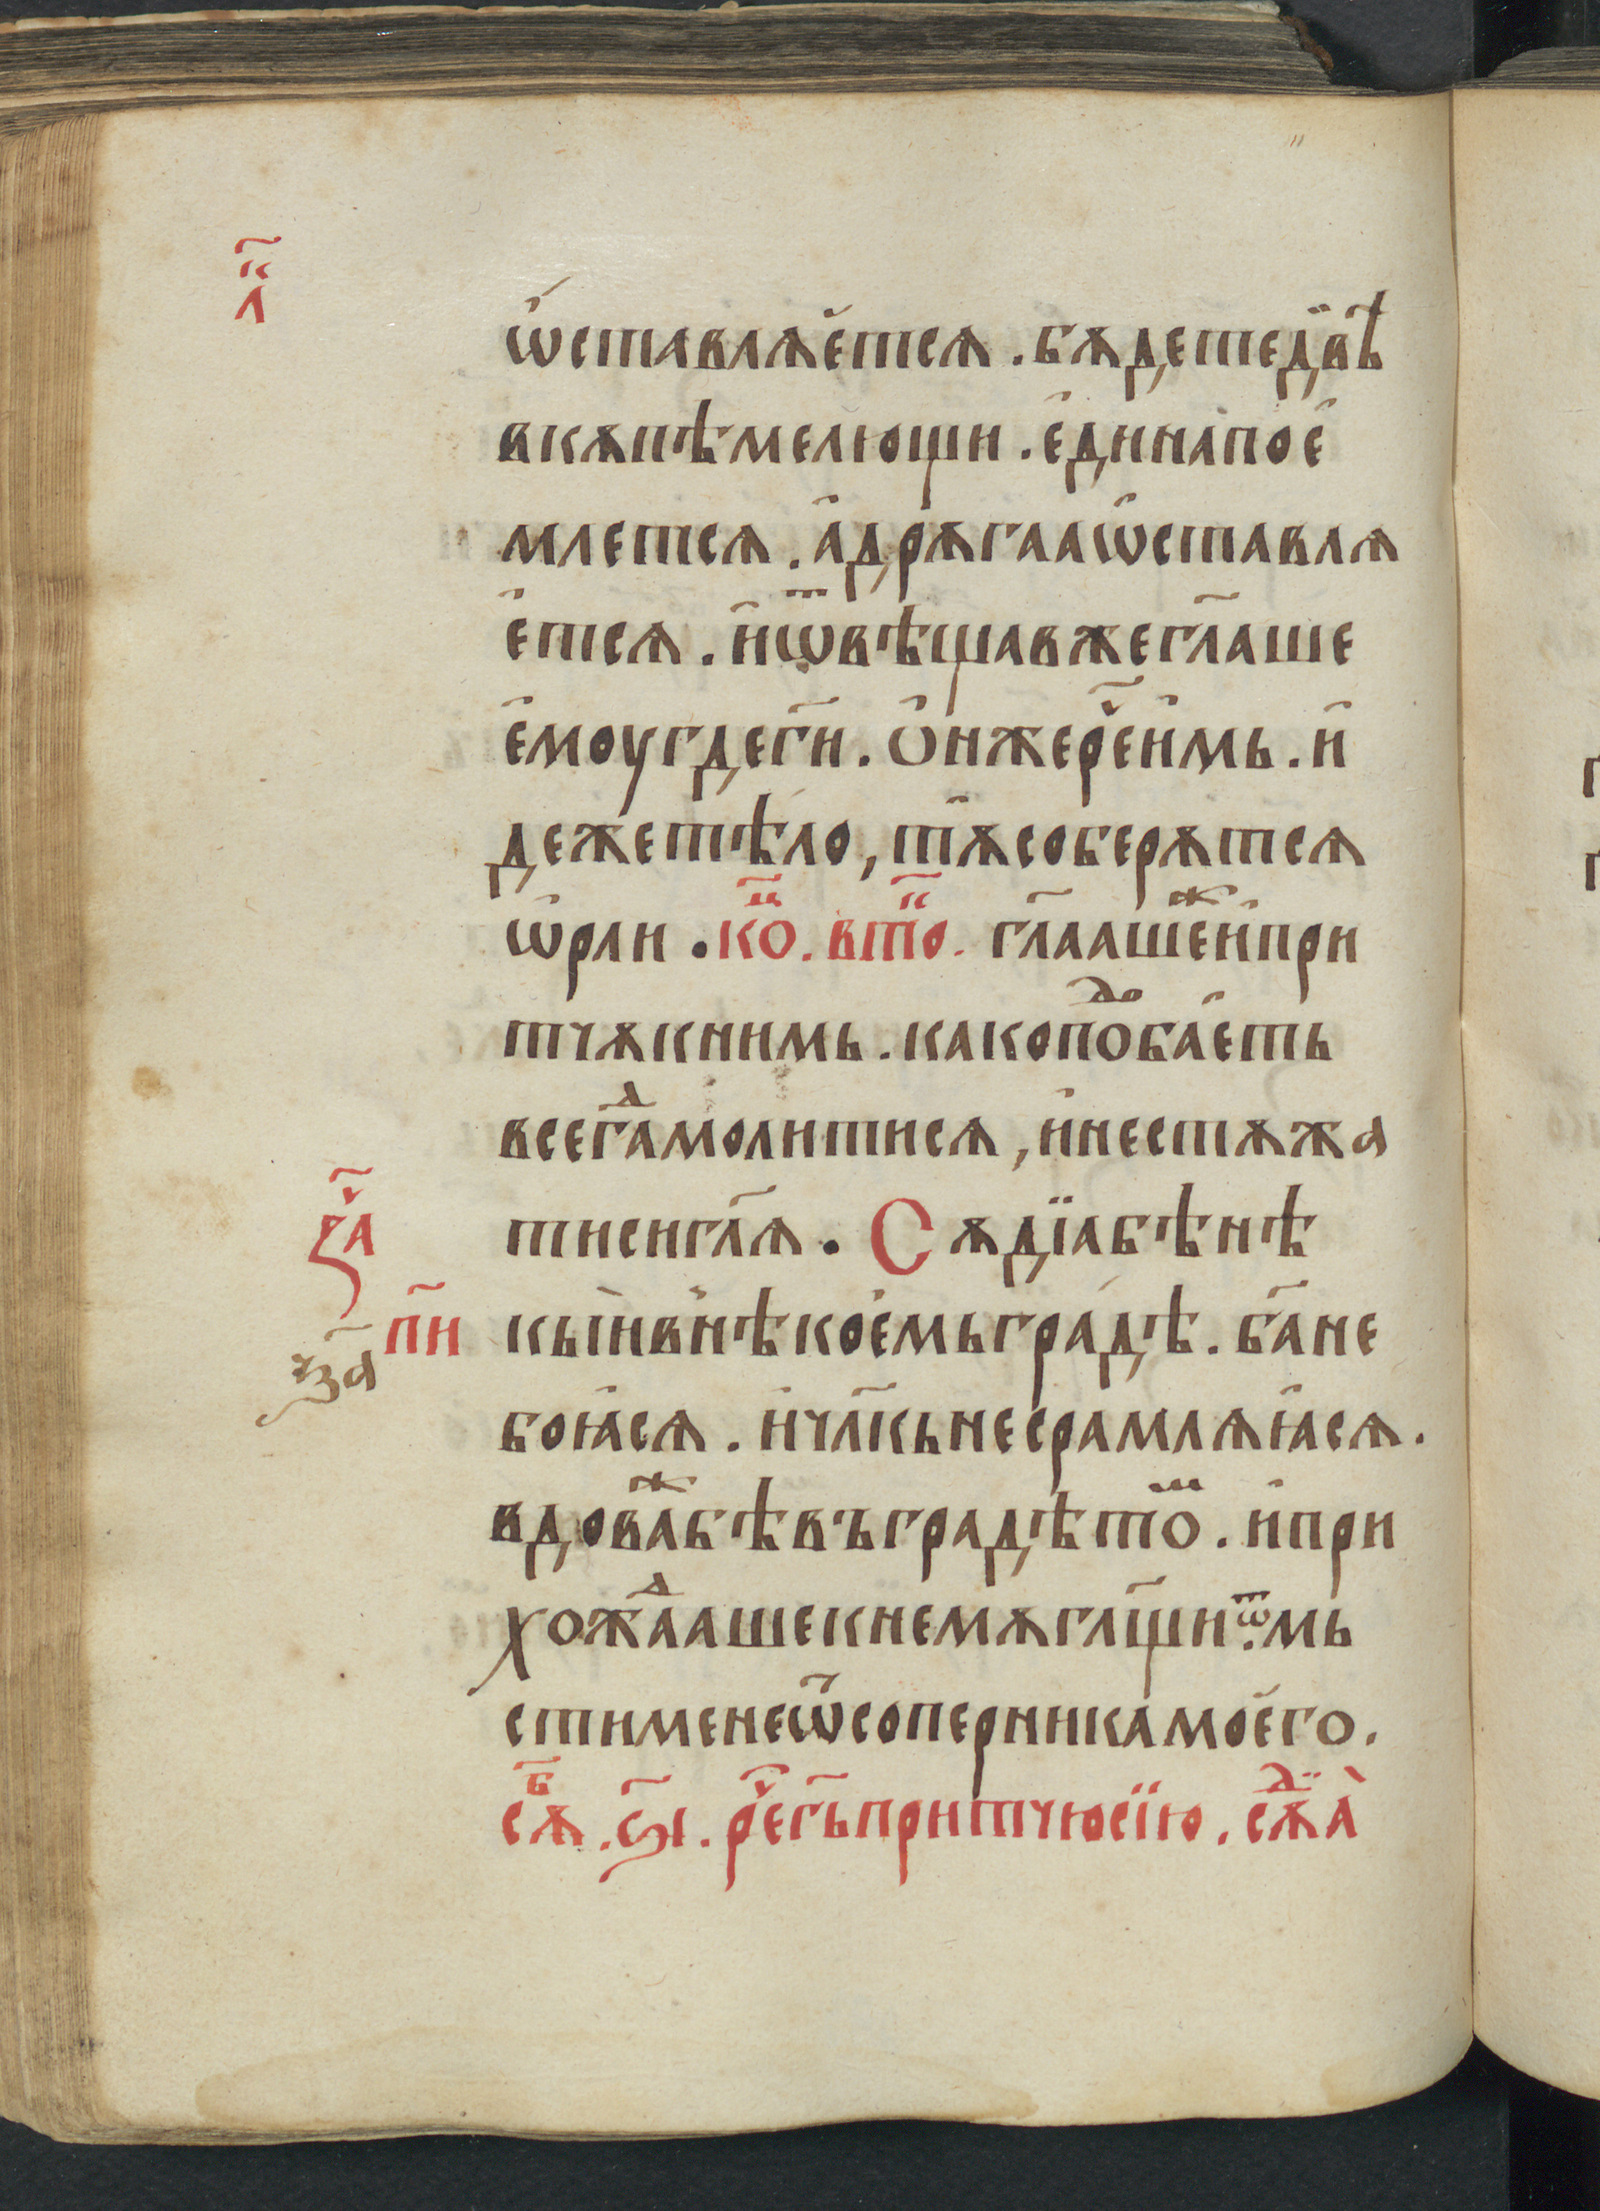 л҃
ѡ҆ставлѧе҆тсѧ . бѫдетедвѣ
вкѫпѣмелющи . е҆динапое҆
млетсѧ . а҆дрѫгааѡ҆ставлѧ
е҆тсѧ . и҆ѿвѣщавжегл҃аше
е҆моугдег҃и . О҆нжереⷱ҇и҆мь . и҆
дежетѣло, тѫ҆соберѫтсѧ
ѡ҆рли . коⷰ҇ . втоⷬ҇ . гл҃аашеⷤи҆при
тчѫкнимь . какопоⷣбае҆ть
всегаⷣмолитисѧ , и҆нестѫжа
тисигл҃ѧ . Сѫдїабѣнѣ
заⷱ҇
пи҃
за҃
кыи҆внѣкое҆мьградѣ . ба҃не
боꙗ҆сѧ . и҆чл҃кьнесрамлѧꙗ҆сѧ .
вдоваⷤбѣвъградѣтоⷨ . и҆при
хожаⷣашекнемѫгл҃щи ѿмь
стименеѿсоперникамое҆го .
сѫⷠ҇ . ѕ҃і . реⷱ҇гь҃притчюсїю . сѫⷣїа̀